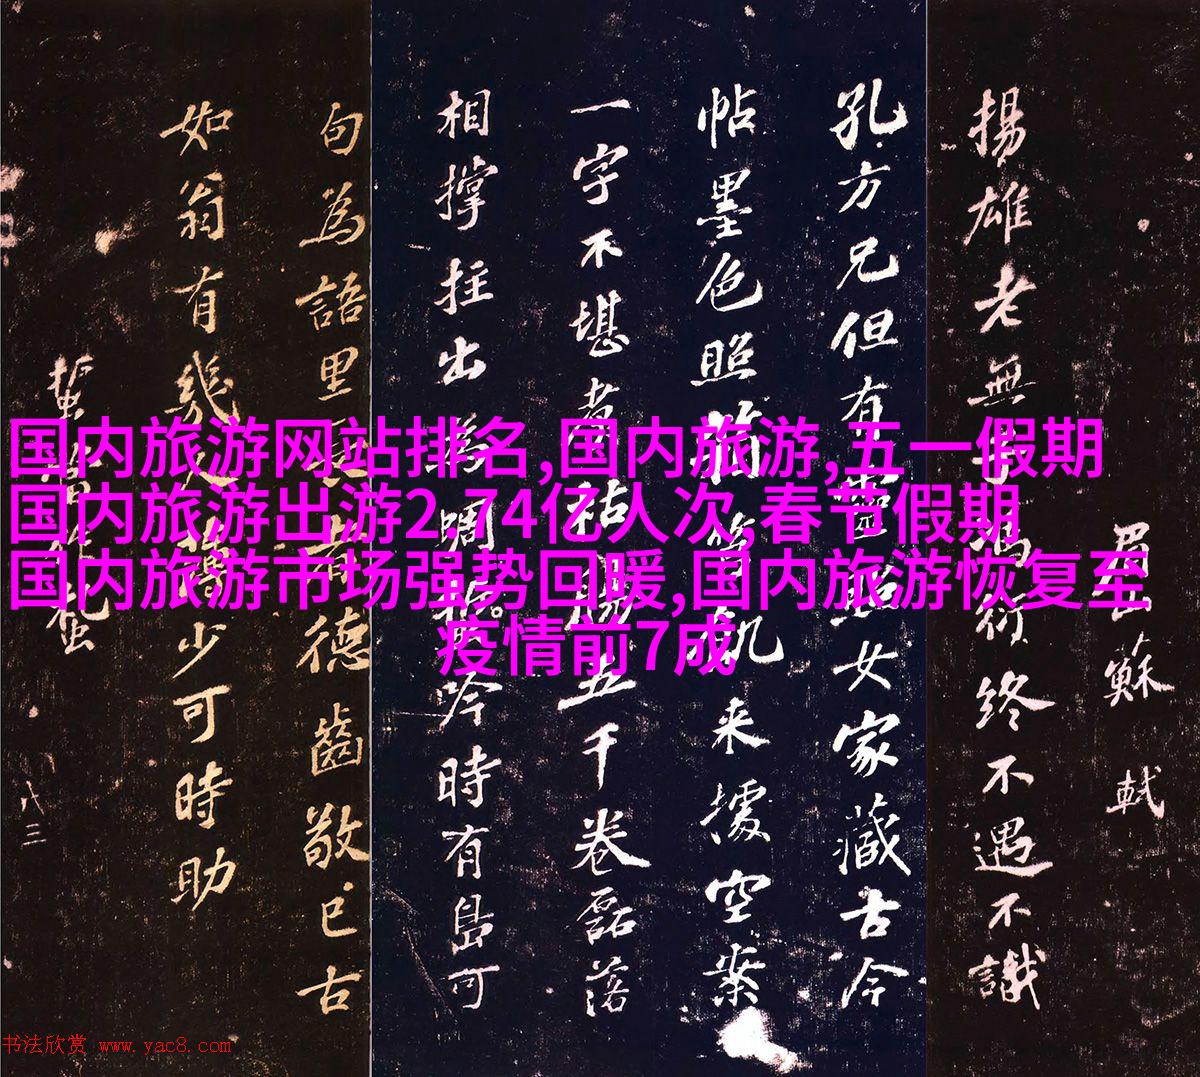 蘇軾
揚雄老無子馮衍終不遇不識
孔方兄但有靈照女家藏古今
帖墨色照箱筥飢来據空案
一字不堪煮枯腸五千卷磊落
相撑拄出為蜩吟時有島可
句為語里長者德齒敬已古
如翁有幾人薄少可時助
八三
国内旅游网站排名,国内旅游,五一假期
国内旅游出游2.74亿人次,春节假期
国内旅游市场强势回暖,国内旅游恢复至
疫情前7成
书法欣赏 www.yac8.com